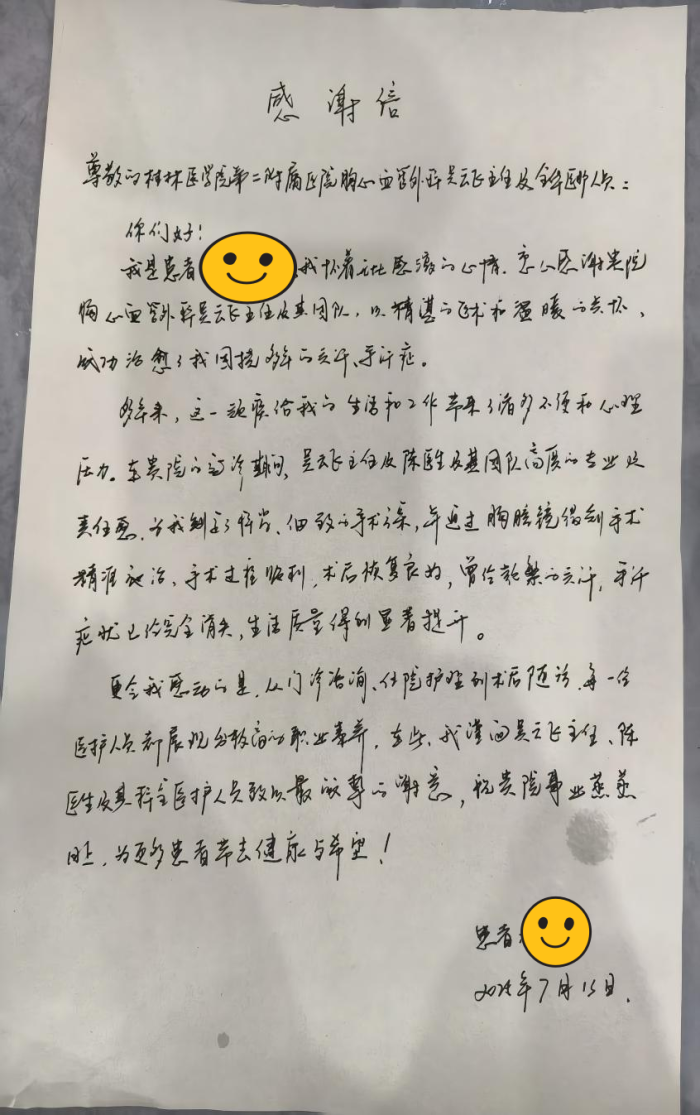 感谢信
尊敬的桂林医学院第二附属医院胸心血管外科吴云飞主任及全体医护人员:
你们好!
我是患者 我怀着无比感激的心情,衷心感谢贵院
胸心血管外科吴云飞主任及其团队,以精湛的医术和温暖的关怀,
成功治愈了我困扰多年的头汗、手汗症。
多年来,这一顽疾给我的生活和工作带来了诸多不便和心理
压力。在贵院的诊期间,吴云飞主任及陈医生及其团队高度的专业及
责任感,为我制定了科学、细致的手术方案,并通过胸腔镜微创手术
精准施治,手术过程顺利,术后恢复良好,曾经频繁的头汗,手汗
症状已经完全消失,生活质量得到显著提升。
更令我感动的是,从门诊咨询、住院护理到术后随访,每一位
医护人员都展现出极高的职业素养,在此,我谨向吴云飞主任、陈
医生及其科室医护人员致以最诚挚的谢意,祝贵院事业蒸蒸
日上,为更多患者带去健康与希望!
患者
2025年7月15日.